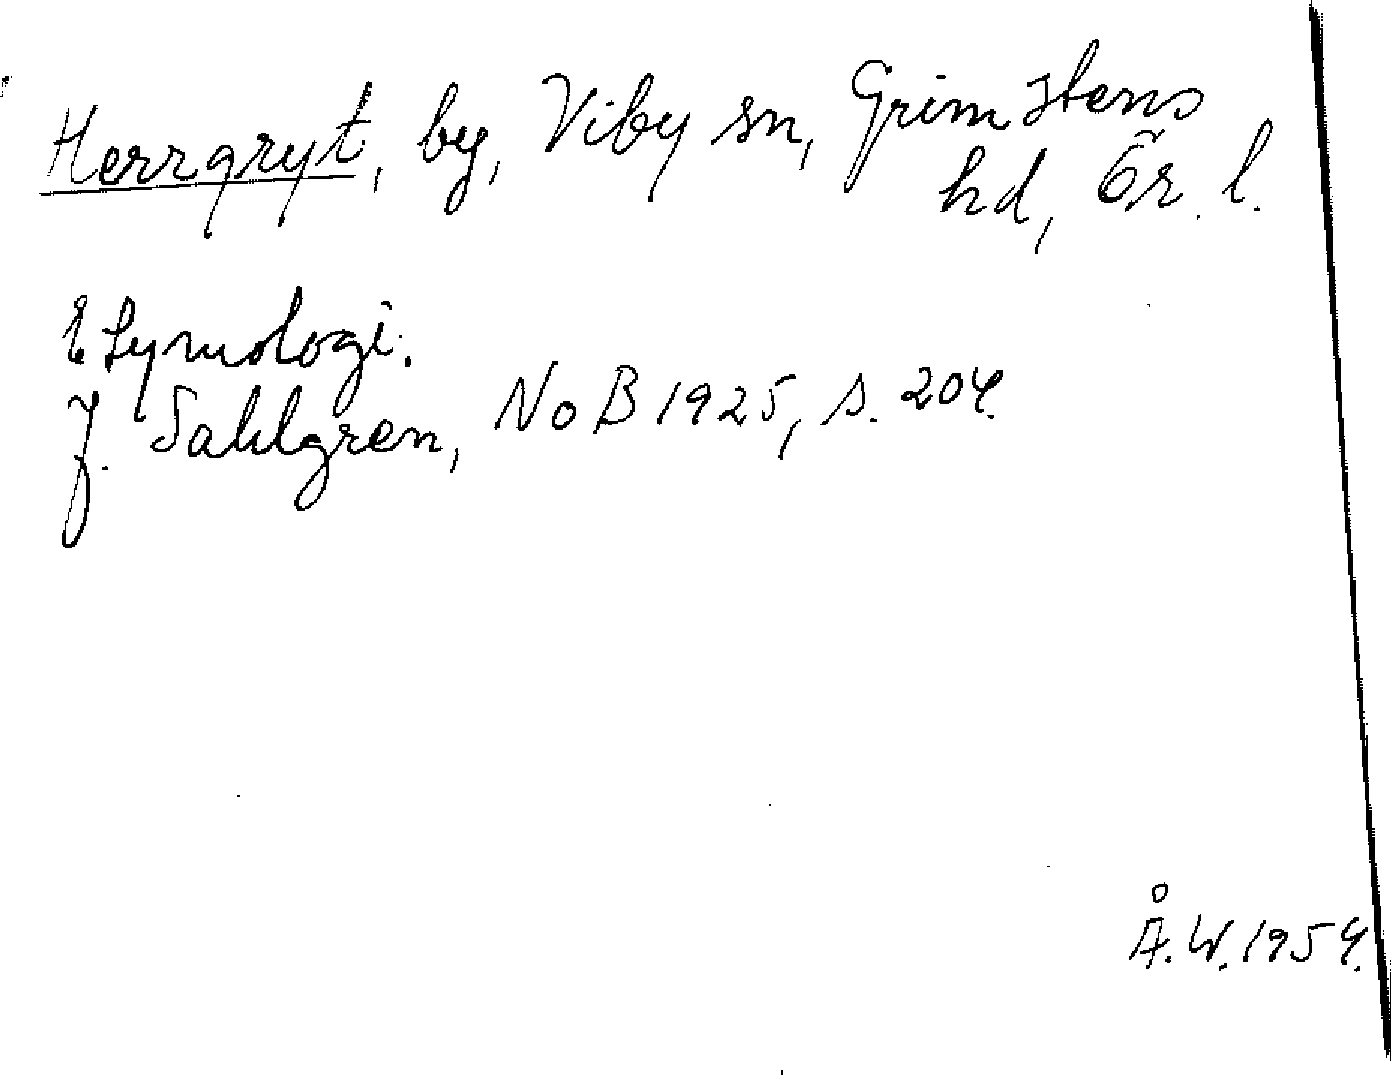 Herrgryt, by, Viby sn, Grimstens
hd, Ör. l.
Etymologi.
J. Sahlgren, NoB 1925, s. 204.
Å. W. 1954.